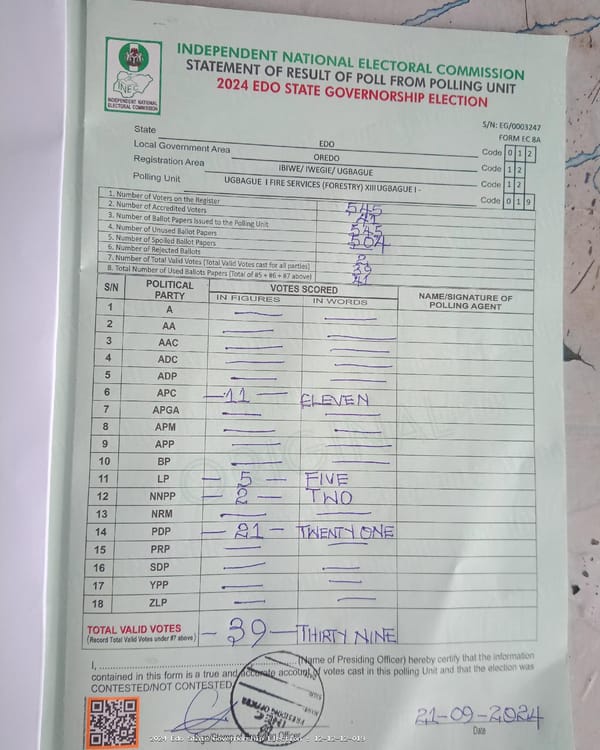 INDEPENDENT NATIONAL ELECTORAL COMMISSION
STATEMENT OF RESULT OF POLL FROM POLLING UNIT
2024 EDO STATE GOVERNORSHIP ELECTION
INEC
INDEPENDENT NATIONAL
ELECTORAL COMMISSION
S/N: EG/0003247
FORM EC 8A
State EDO Code 0 1 2
Local Government Area OREDO Code 1 2
Registration Area IBIWE/ IWEGIE/ UGBAGUE Code 1 2
Polling Unit UGBAGUE I FIRE SERVICES (FORESTRY) XIII UGBAGUE I - Code 0 1 9
1. Number of Voters on the Register 545
2. Number of Accredited Voters 41
3. Number of Ballot Papers Issued to the Polling Unit 545
4. Number of Unused Ballot Papers 504
5. Number of Spoiled Ballot Papers
6. Number of Rejected Ballots 2
7. Number of Total Valid Votes (Total Valid Votes cast for all parties) 39
8. Total Number of Used Ballots Papers (Total of #5 + #6 + #7 above) 41
S/N POLITICAL PARTY VOTES SCORED NAME/SIGNATURE OF POLLING AGENT
IN FIGURES IN WORDS
1 A
2 AA
3 AAC
4 ADC
5 ADP
6 APC 11 ELEVEN
7 APGA
8 APM
9 APP
10 BP
11 LP 5 FIVE
12 NNPP 2 TWO
13 NRM
14 PDP 21 TWENTY ONE
15 PRP
16 SDP
17 YPP
18 ZLP
TOTAL VALID VOTES - 39 - THIRTY NINE
(Record Total Valid Votes under #7 above)
I, ........................(Name of Presiding Officer) hereby certify that the information
contained in this form is a true and accurate account of votes cast in this polling Unit and that the election was
CONTESTED/NOT CONTESTED
INEC
PRESIDING OFFICER
21-09-2024
Date
2024 Edo State Governorship Election - 12-12-12-019